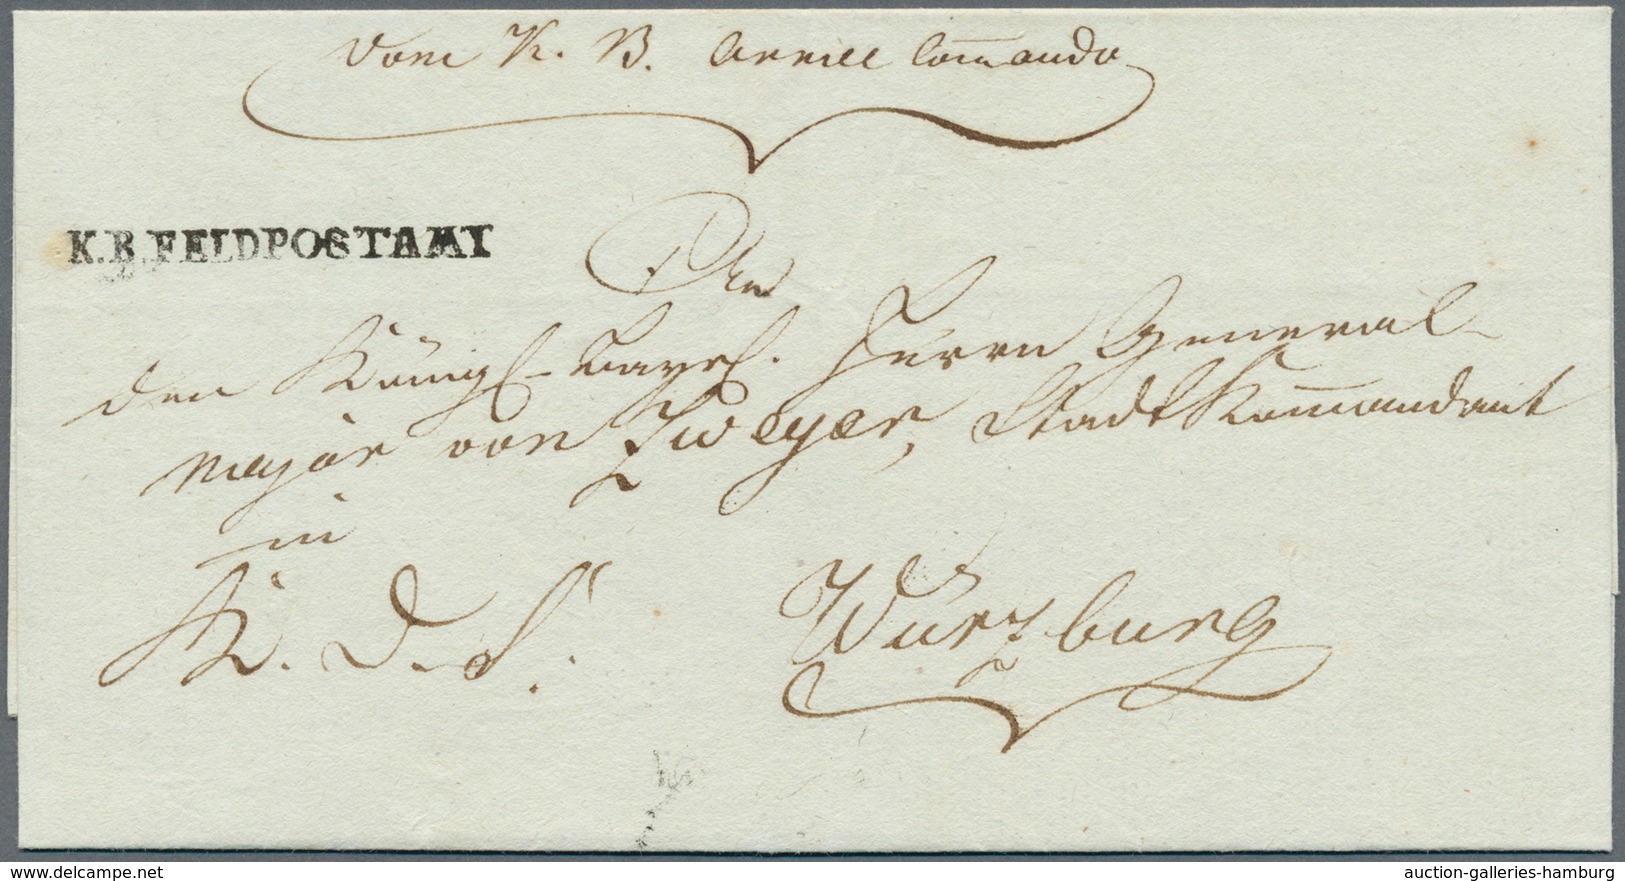 Vom K. B. Armee Com̅ando
K.B.FELDPOSTAMT
An
den Königl. Bayer. Herrn General-
major von Zweyer, Stadt Kom̅andant
in
K. D. S. Würzburg
delcampe.net
auction-galleries-hamburg